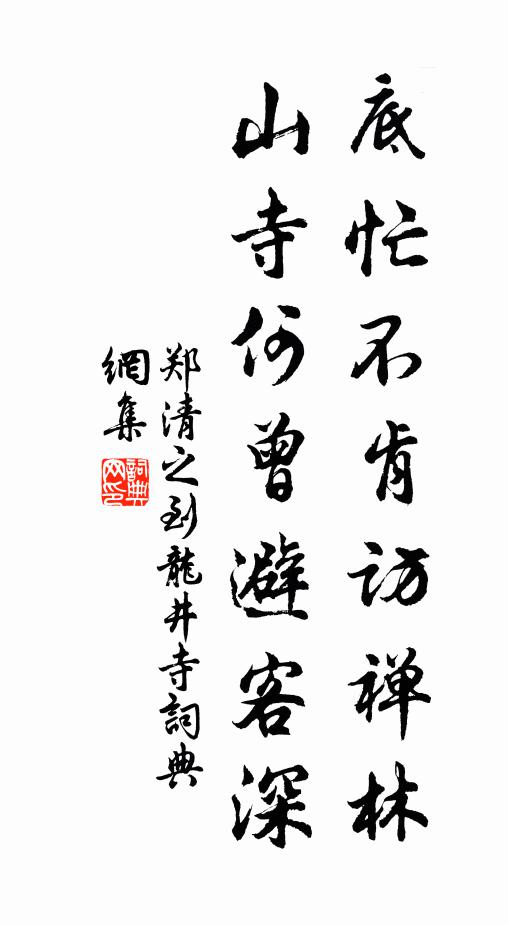 底忙不肯访禅林
山寺何曾避客深
郑清之到龍井寺詞典
網集
詞典
网印